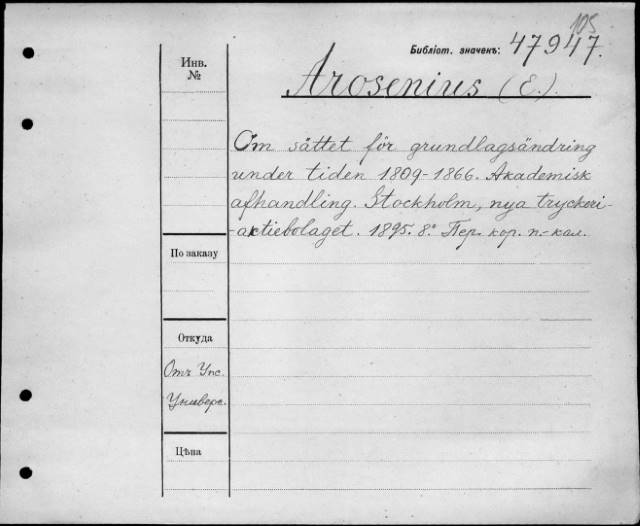 105
Библіот. значекъ: 47947.
Инв. №
Arosenius (E.)
Om sättet för grundlagsändring
under tiden 1809-1866. Akademisk
afhandling. Stockholm, nya tryckeri-
-aktiebolaget. 1895. 8° Пер. кор. п.-кал.
По заказу
Откуда
Отъ Упс.
Универс.
Цѣна